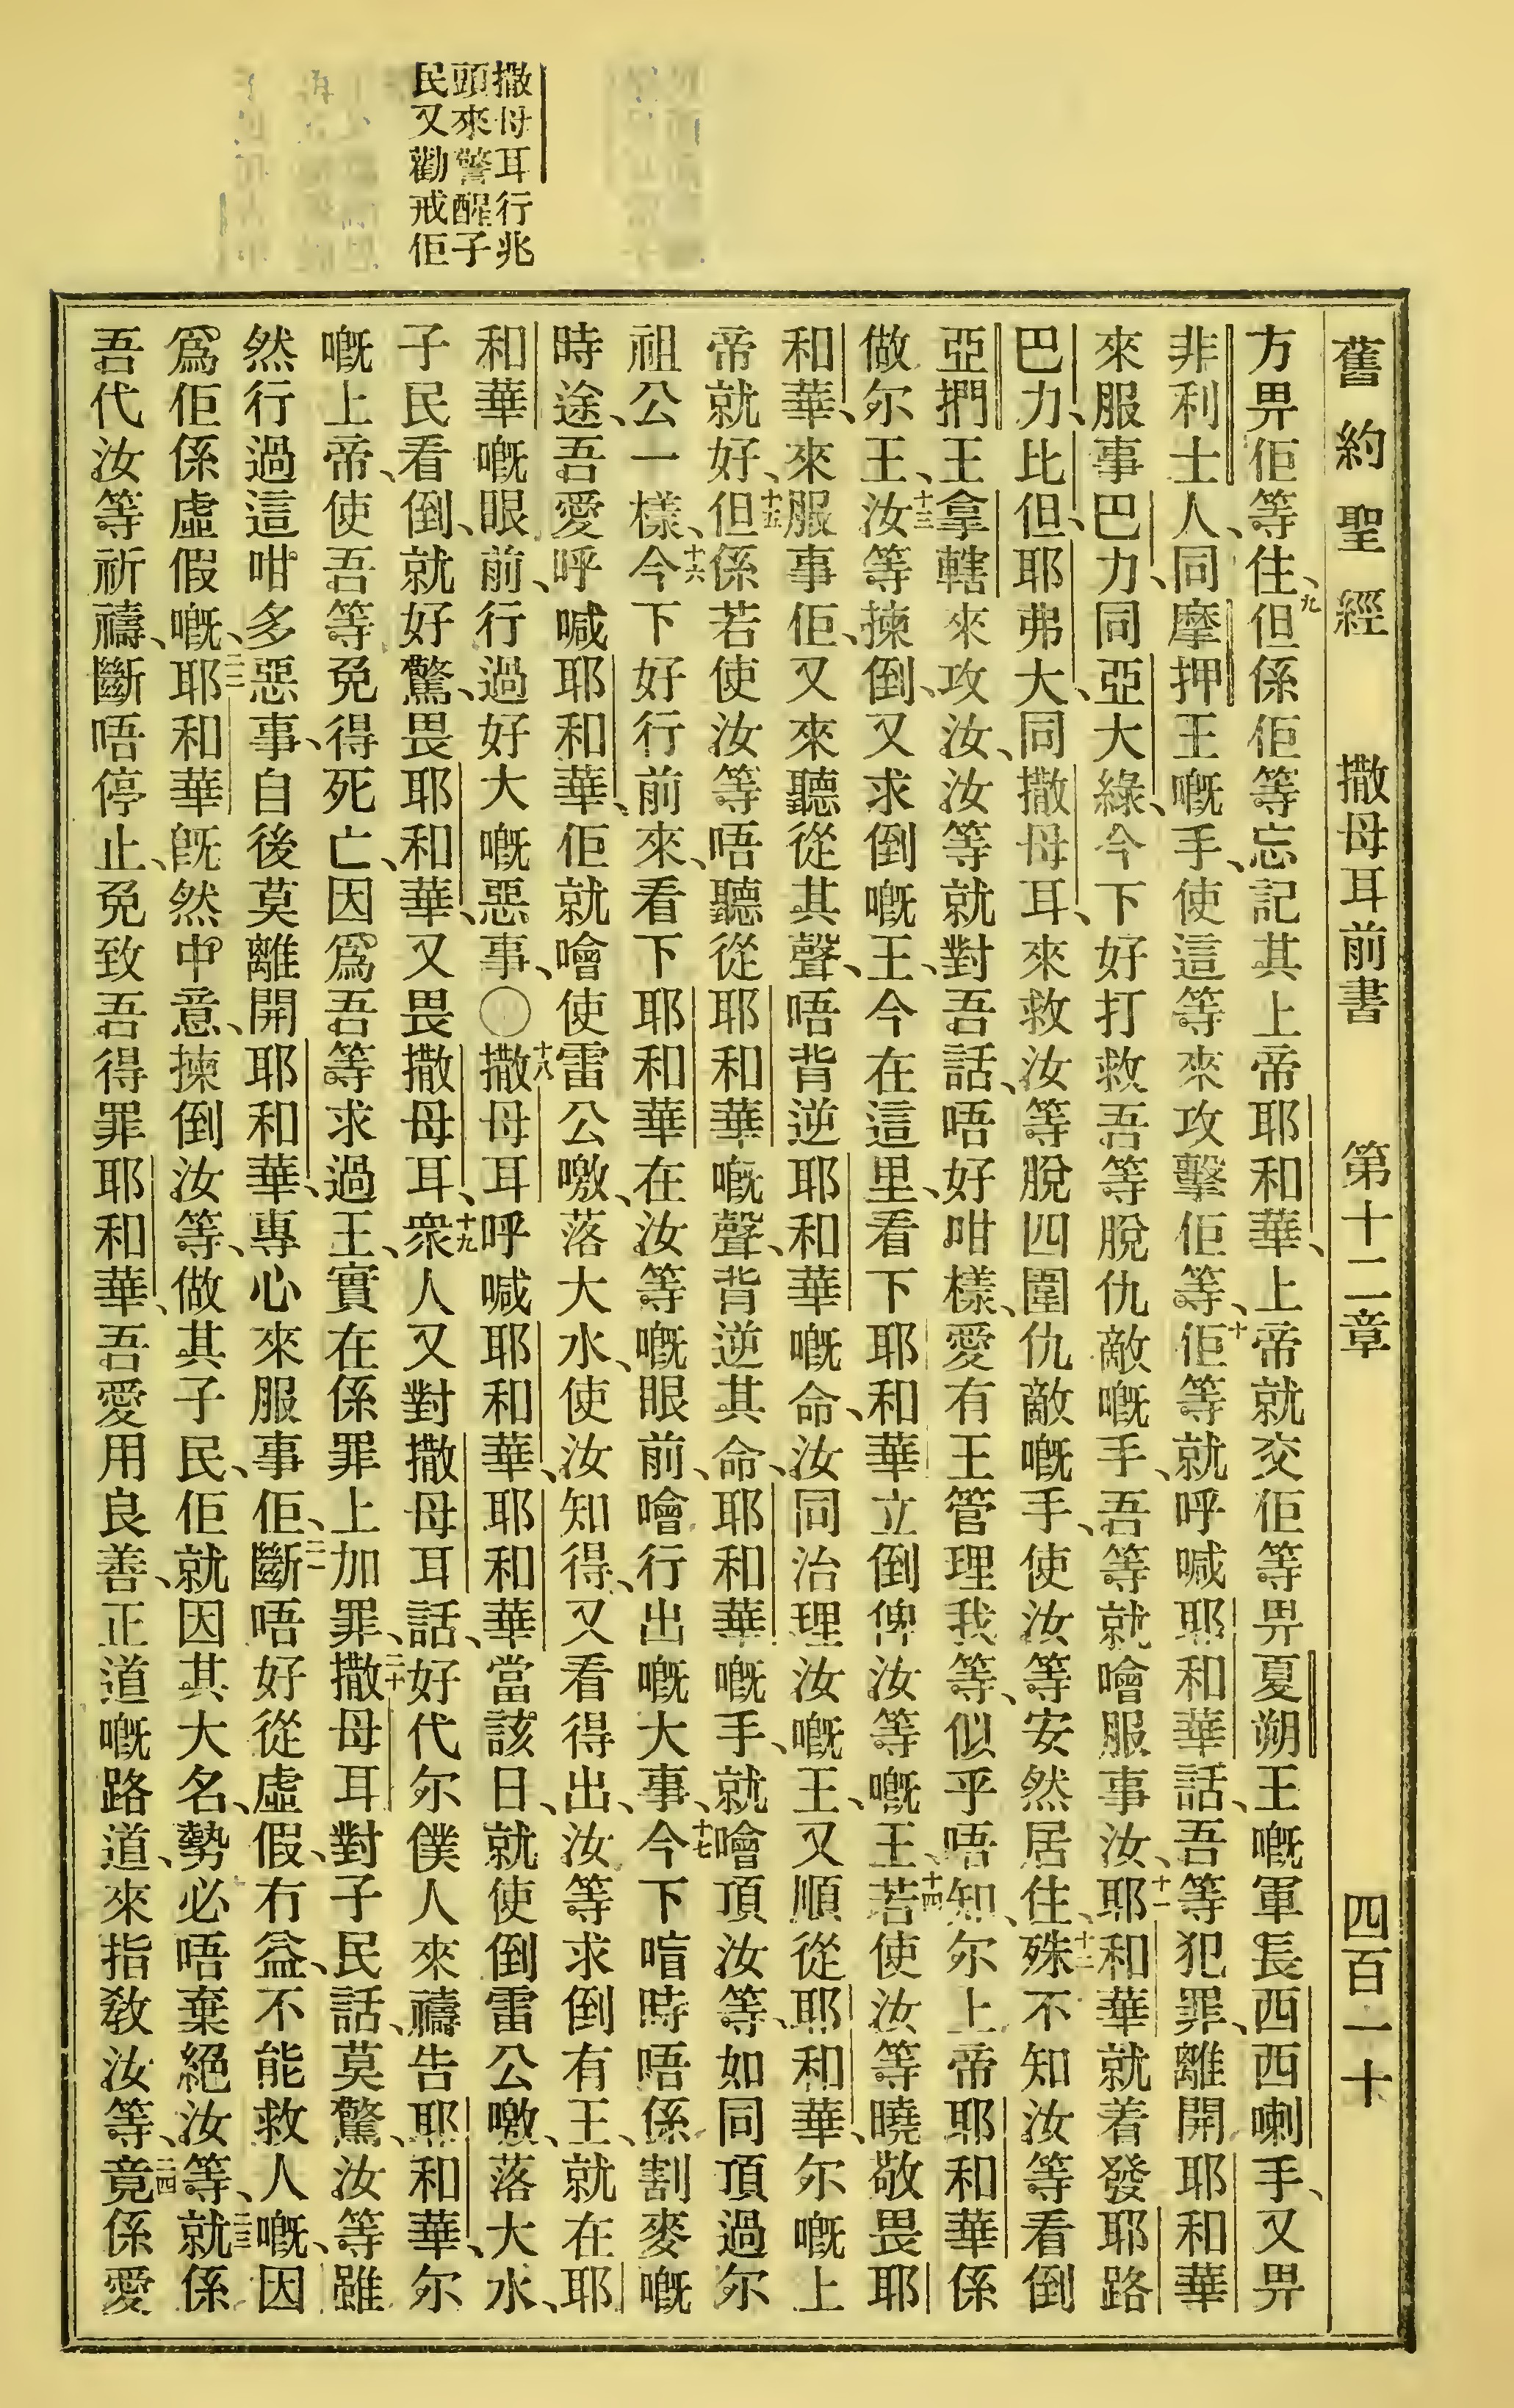 舊約聖經 撒母耳前書 第十二章 四百一十
方畀佢等住、九但係佢等忘記其上帝耶和華、上帝就交佢等畀夏朔王嘅軍長西西喇手、又畀
非利士人、同摩押王嘅手、使這等來攻擊佢等、十佢等就呼喊耶和華話、吾等犯罪、離開耶和華
來服事巴力、同亞大綠、今下好打救吾等脫仇敵嘅手、吾等就噲服事汝、十一耶和華就着發耶路
巴力、比但、耶弗大、同撒母耳、來救汝等脫四圍仇敵嘅手、使汝等安然居住、十二殊不知汝等看倒
亞捫王拿轄來攻汝、汝等就對吾話、唔好咁樣、愛有王管理我等、似乎唔知、尔上帝耶和華係
做尔王、十三汝等揀倒、又求倒嘅王、今在這里、看下耶和華立倒俾汝等嘅王、十四若使汝等曉敬畏耶
和華、來服事佢、又來聽從其聲、唔背逆耶和華嘅命、汝同治理汝嘅王、又順從耶和華、尔嘅上
帝就好、十五但係若使汝等唔聽從耶和華嘅聲、背逆其命、耶和華嘅手、就噲頂汝等、如同頂過尔
祖公一樣、十六今下好行前來、看下耶和華在汝等嘅眼前、噲行出嘅大事、十七今下㫘時唔係割麥嘅
時途、吾愛呼喊耶和華、佢就噲使雷公噭、落大水、使汝知得、又看得出、汝等求倒有王、就在耶
和華嘅眼前、行過好大嘅惡事、〇十八撒母耳呼喊耶和華、耶和華當該日、就使倒雷公噭、落大水、
子民看倒、就好驚、畏耶和華、又畏撒母耳、十九衆人又對撒母耳話、好代尔僕人來禱告耶和華、尔
嘅上帝、使吾等免得死亡、因爲吾等求過王、實在係罪上加罪、二十撒母耳對子民話、莫驚、汝等雖
然行過這咁多惡事、自後莫離開耶和華、專心來服事佢、二一斷唔好從虛假、冇益、不能救人嘅、因
爲佢係虛假嘅、二二耶和華旣然中意、揀倒汝等、做其子民、佢就因其大名、勢必唔棄絕汝等、二三就係
吾代汝等祈禱、斷唔停止、免致吾得罪耶和華、吾愛用良善、正道嘅路道、來指敎汝等、二四竟係愛
撒母耳行兆
頭來警醒子
民又勸戒佢